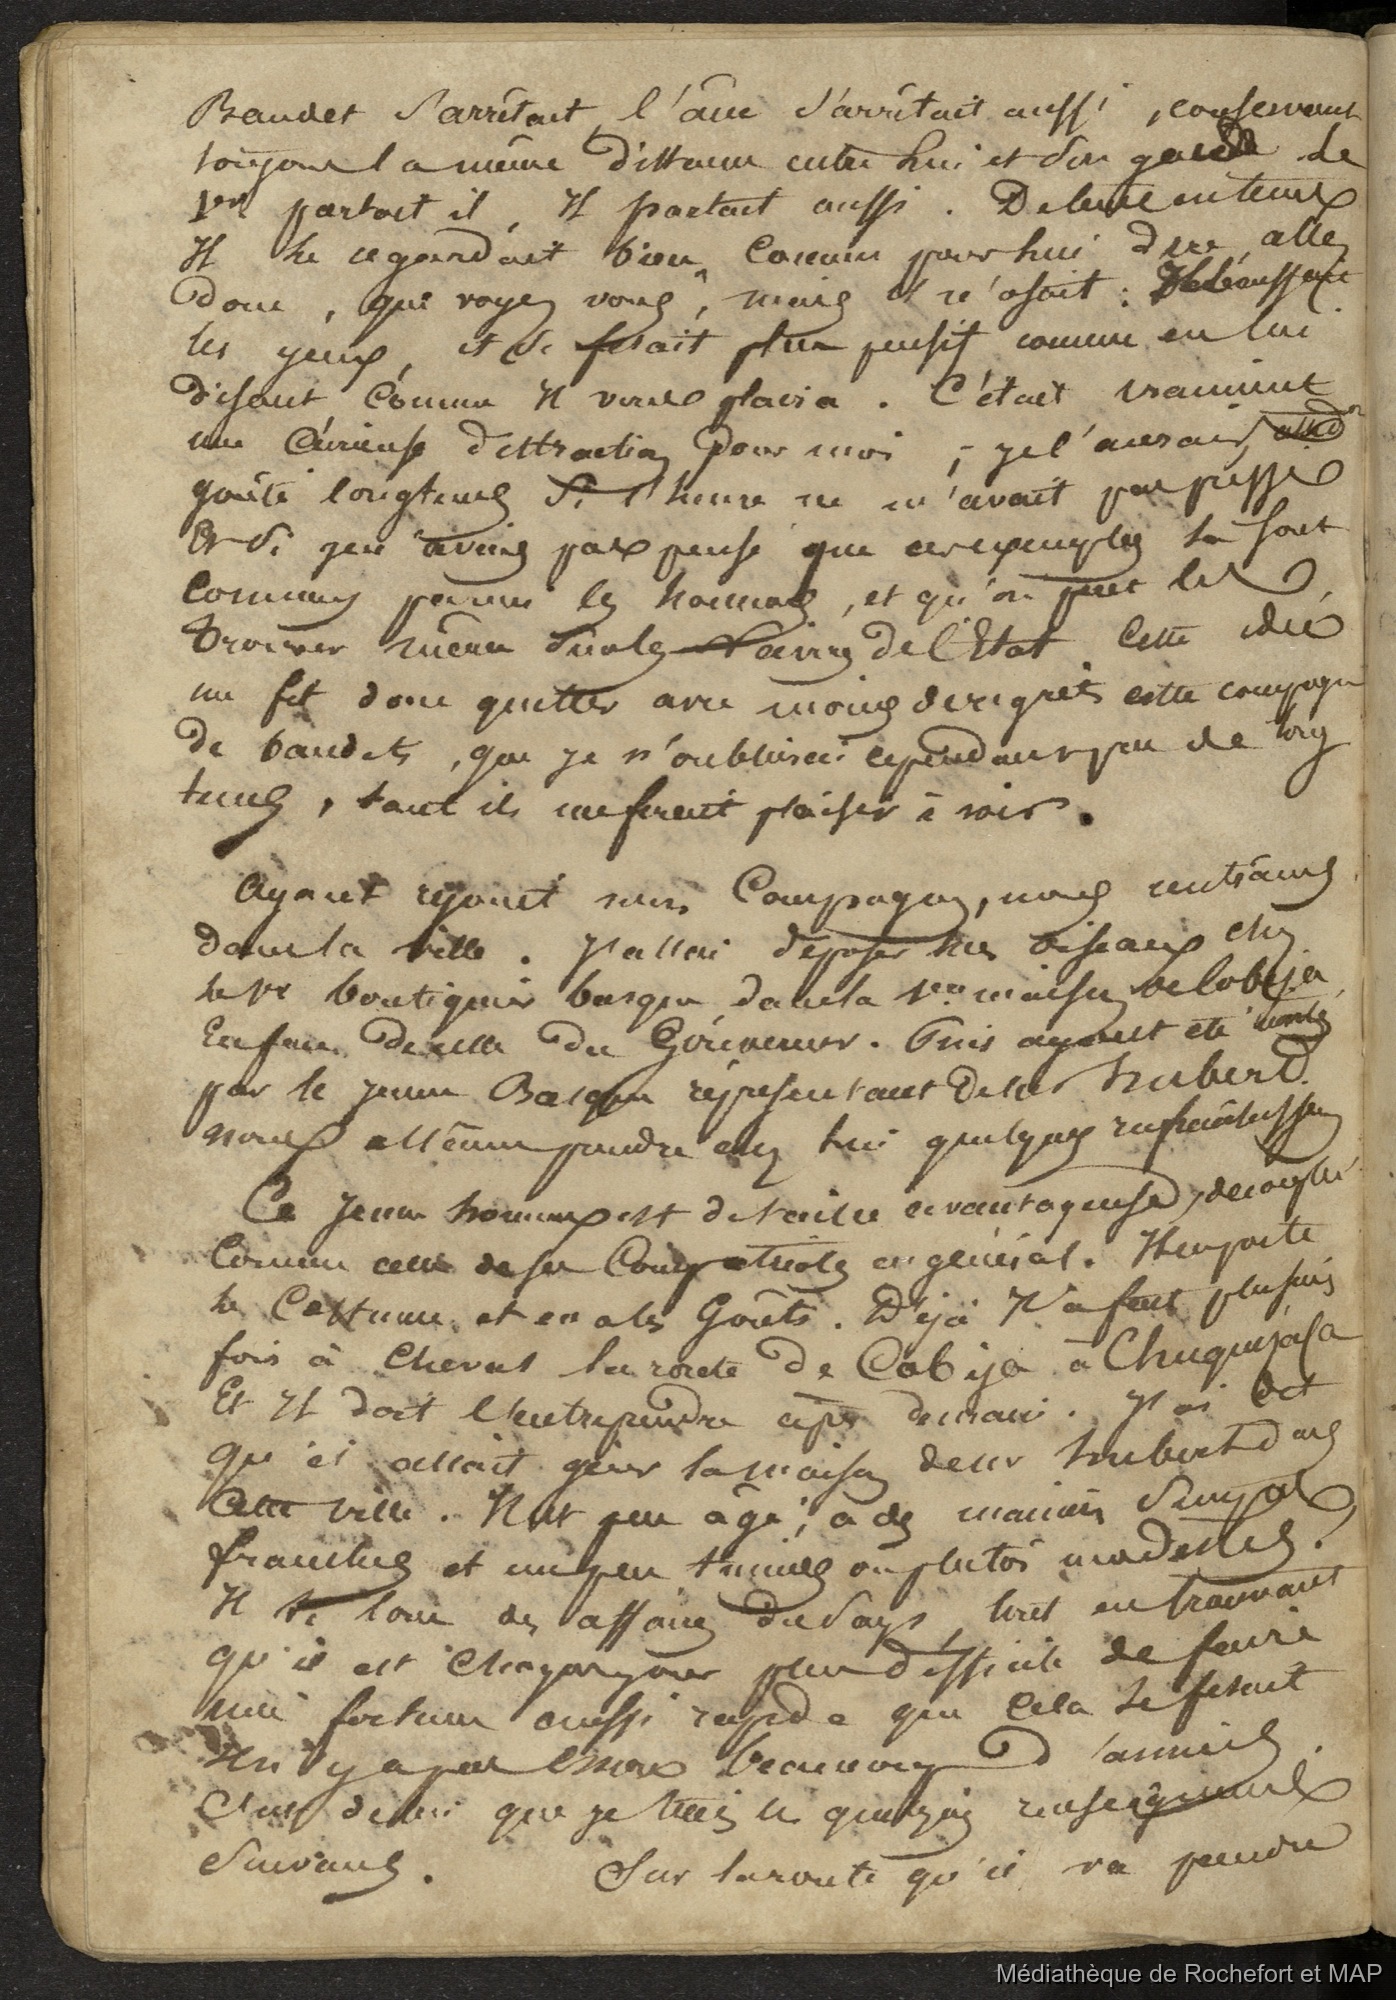 Baudet s'arrêtait, l'âne s'arrêtait aussi, conservant
toujours la même distance entre lui et son garde le
1er partait il, Il partait aussi. De tems en tems
Il le regardait bien comme pour lui dire allez
donc, que voyez vous, mais il n'osait :
les yeux, et se fesait plus pensif comme en lui
disant comme Il vous plaira. C'était vraiment
une curieuse distraction pour moi ; je l'aurais
goûté longtems si l'heure ne m'avait pas pressé
Et si je n'avais pas pensé que ces exemples là sont
communs parmi les hommes, et qu'on peut les
trouver même sur les de l'Etat. Cette idée
me fit donc quitter avec moins de regrêts cette compagnie
de baudets, que je n'oublierai cependant pas de long
tems, tant ils me firent plaisir à voir.
Ayant rejoint mes Compagnons, nous rentrâmes
dans la ville. J'allai déposer les oiseaux chez
le 1er boutiquier basque dans la 1ere maison de Cobija
En face de celle du Gouverneur. Puis ayant été invités
par le jeune Basque représentant de Mr Hubert
nous allâmes prendre chez lui quelques rafraichissemens
Ce jeune homme est de taille avantageuse, découplé
comme celle de ses Compatriotes en général. Il en porte
le Costume et en a les Goûts. Déjà Il a fait plusieurs
fois à cheval la route de Cobija à Chuquisaca
Et Il doit l'entreprendre après demain. J'ai dit
qu'il allait gérer la maison de Mr Hubert dans
cette ville. Il est peu âgé, a des manières simples,
franches et un peu timides ou plutôt modestes.
Il se loue des affaires du Pays, tout en trouvant
qu'il est chaque jour plus difficile de faire
une fortune aussi rapide que cela se fesait
Il n'y a pas encore beaucoup d'années.
C'est de lui que je tiens les quelques renseignemens
Suivans. Sur la route qu'il va prendre
Médiathèque de Rochefort et MAP